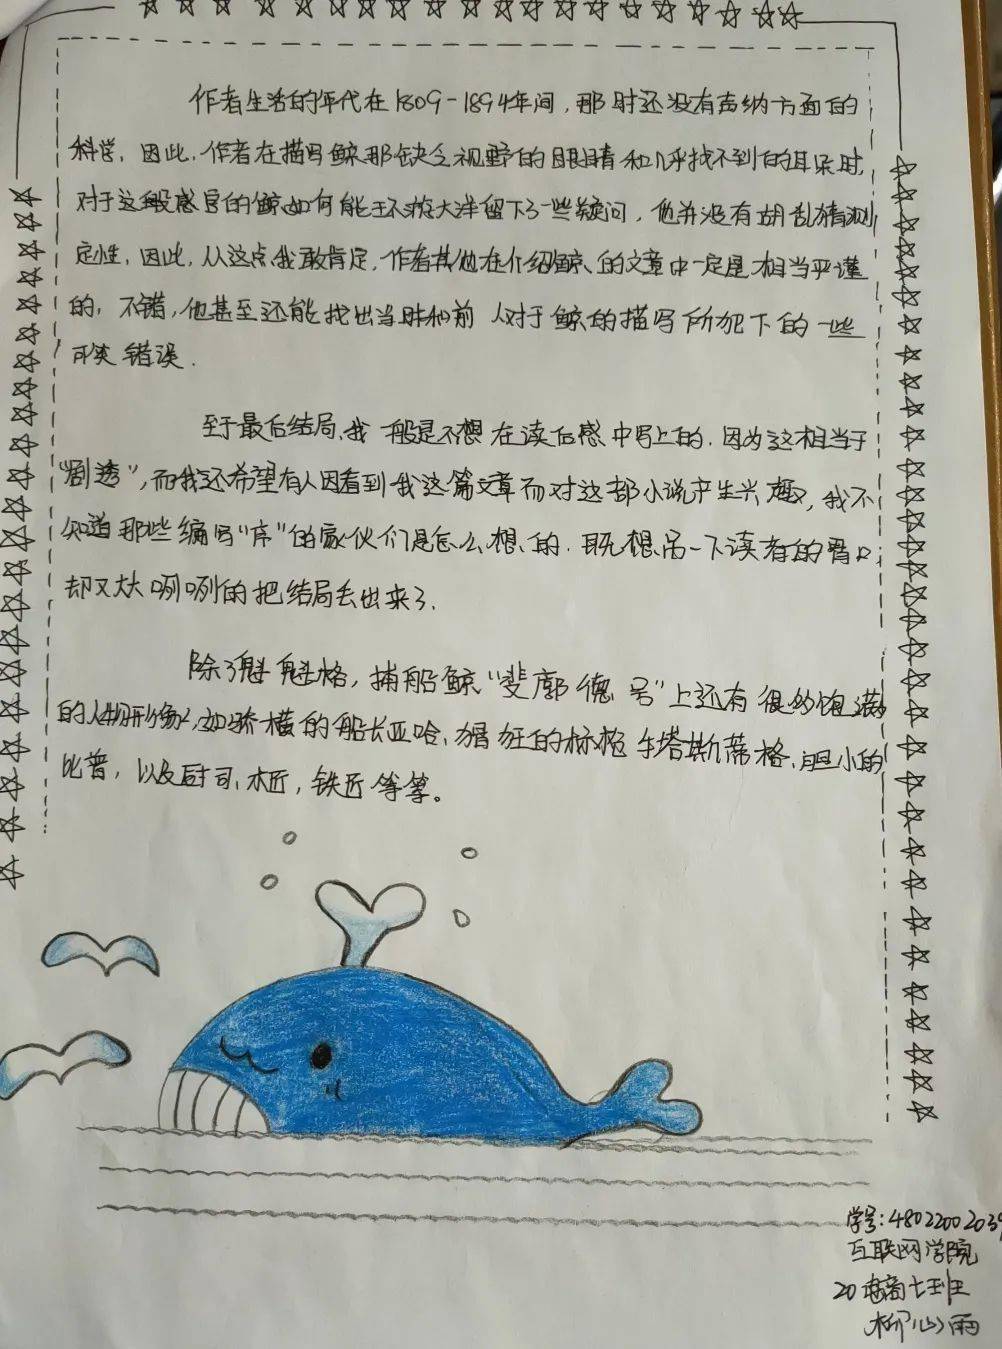 作者生活的年代在1809-1894年间，那时还没有声纳方面的
科学，因此，作者在描写鲸那缺乏视野的眼睛和几乎找不到的耳朵时，
对于这般感官的鲸如何能环游大洋留下了一些疑问，他并没有胡乱猜测
定性，因此，从这点我敢肯定，作者其他在介绍鲸的文章中一定是相当严谨
的，不错，他甚至还能找出当时和前人对于鲸的描写所犯下的一些
可笑错误.
至于最后结局，我一般是不想在读后感中写上的，因为这相当于
“剧透”，而我还希望有人因看到我这篇文章而对这部小说产生兴趣，我不
知道那些编写“序”的家伙们是怎么想的，既想吊一下读者的胃口，
却又大大咧咧的把结局去出来了.
除了魁魁格，捕船鲸“斐廓德号”上还有很多饱满
的人物形象，如骄横的船长亚哈、猖狂的标枪手塔斯蒂格、胆小的
比普，以及厨司，木匠，铁匠等等。
学号：48022002039
互联网学院
20电商七班
柳心雨